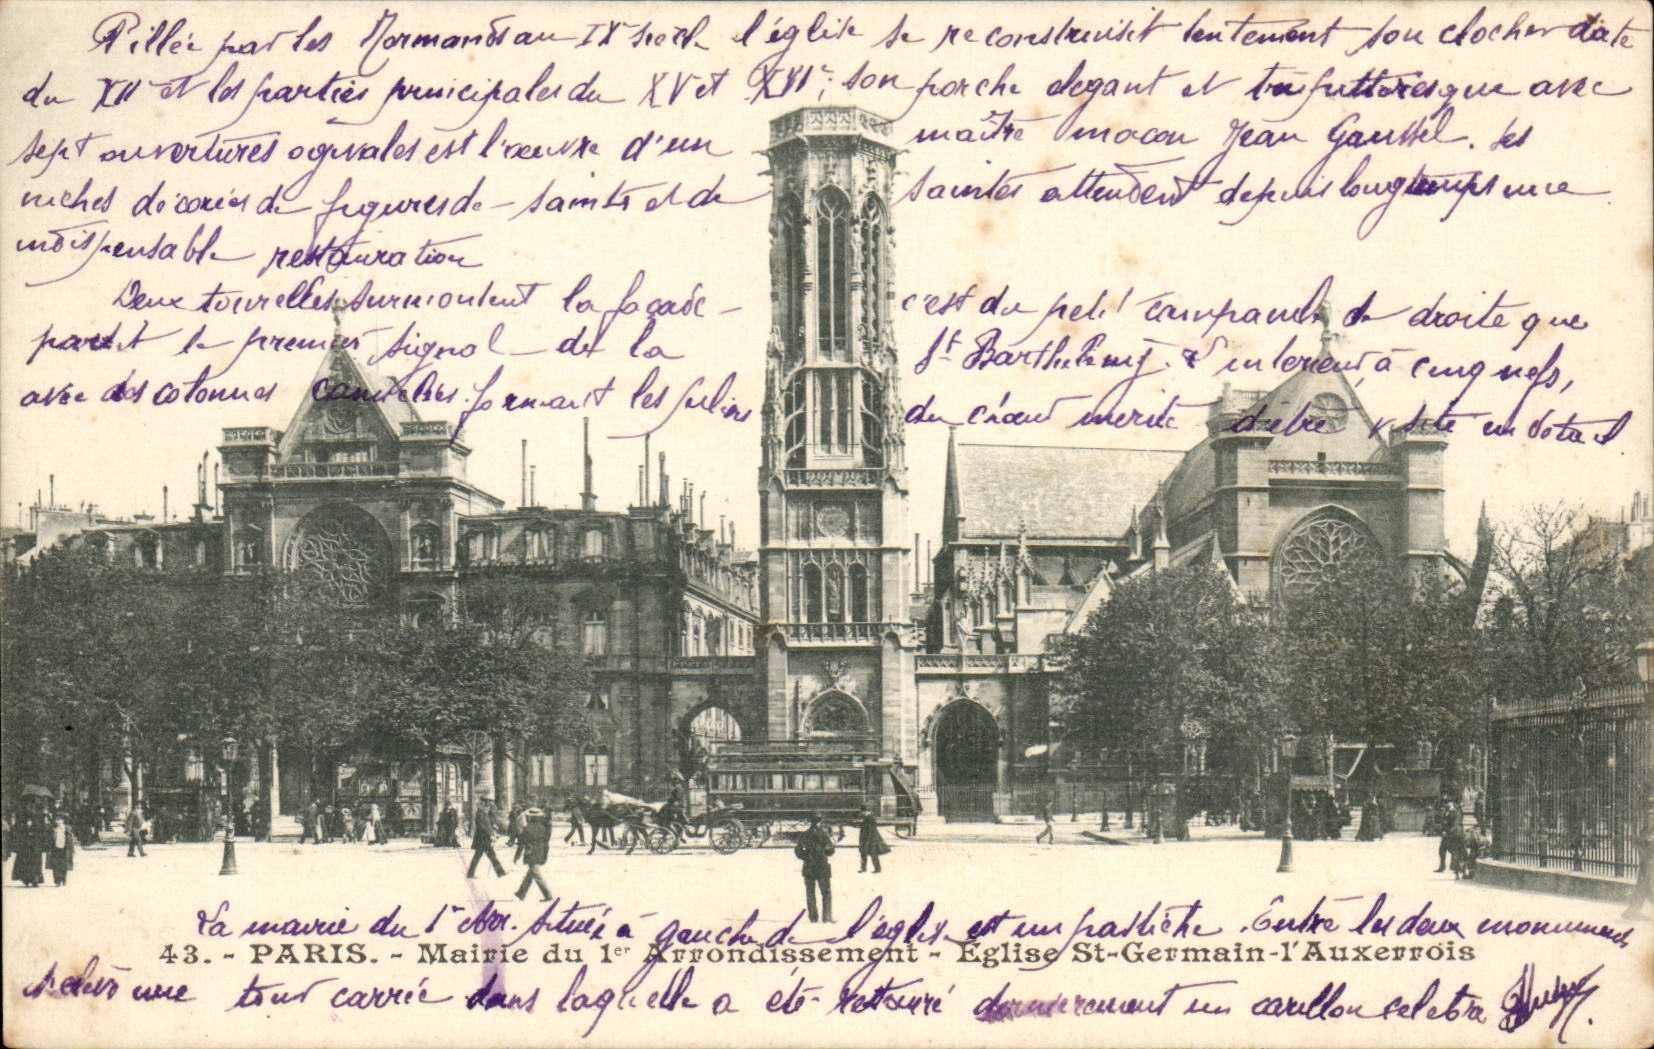 Pillée par les Normands au IXe siècle l'église se reconstruisit lentement son clocher date
du XII et les parties principales du XV et XVIe; son porche elegant et très pittoresque avec
sept ouvertures ogivales est l'œuvre d'un maître macon Jean Gaussel. Ses
niches décorées de figures de saints et de saintes attendent depuis longtemps une
indispensable restauration
Deux tourelles surmontent la façade c'est du petit campanile de droite que
partit le premier signal de la St Barthélemy. L'interieur, à cinq nefs,
avec des colonnes cannelées formant les piliers du chœur merite d'être visité en détail
La mairie du 1er Arr. située à gauche de l'église est un pastiche. Entre les deux monuments
43. - PARIS. - Mairie du 1er Arrondissement - Église St-Germain-l'Auxerrois
s'elève une tour carrée dans laquelle a été dernièrement un carillon celebre